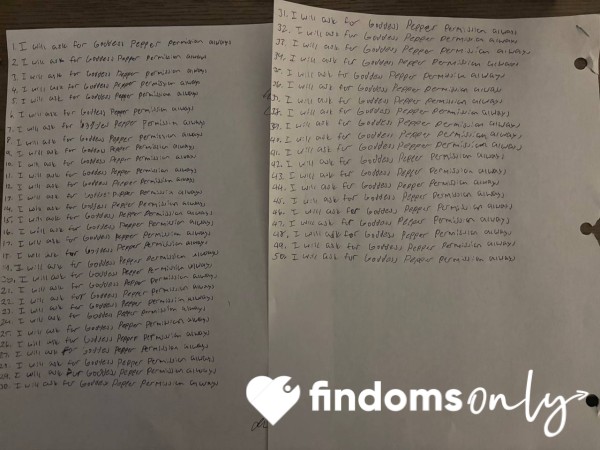 1. I will ask for Goddess Pepper permission always
2. I will ask for Goddess Pepper permission always
3. I will ask for Goddess Pepper permission always
4. I will ask for Goddess Pepper permission always
5. I will ask for Goddess Pepper permission always
6. I will ask for Goddess Pepper permission always
7. I will ask for Pepper permission always
8. I will ask for Goddess Pepper permission always
9. I will ask for Goddess Pepper permission always
10. I will ask for Goddess Pepper permission always
11. I will ask for Goddess Pepper permission always
12. I will ask for Goddess Pepper permission always
13. I will ask for Goddess Pepper permission always
14. I will ask for Goddess Pepper permission always
15. I will ask for Goddess Pepper permission always
16. I will ask for Goddess Pepper permission always
17. I will ask for Goddess Pepper permission always
18. I will ask for Goddess Pepper permission always
19. I will ask for Goddess Pepper permission always
20. I will ask for Goddess Pepper permission always
21. I will ask for Goddess Pepper permission always
22. I will ask for Goddess Pepper permission always
23. I will ask for Goddess Pepper permission always
24. I will ask for Goddess Pepper permission always
25. I will ask for Goddess Pepper permission always
26. I will ask for Goddess Pepper permission always
27. I will ask for Goddess Pepper permission always
28. I will ask for Goddess Pepper permission always
29. I will ask for Goddess Pepper permission always
30. I will ask for Goddess Pepper permission always
31. I will ask for Goddess Pepper permission always
32. I will ask for Goddess Pepper permission always
33. I will ask for Goddess Pepper permission always
34. I will ask for Goddess Pepper permission always
35. I will ask for Goddess Pepper permission always
36. I will ask for Goddess Pepper permission always
37. I will ask for Goddess Pepper permission always
38. I will ask for Goddess Pepper permission always
39. I will ask for Goddess Pepper permission always
40. I will ask for Goddess Pepper permission always
41. I will ask for Goddess Pepper permission always
42. I will ask for Goddess Pepper permission always
43. I will ask for Goddess Pepper permission always
44. I will ask for Goddess Pepper permission always
45. I will ask for Goddess Pepper permission always
46. I will ask for Goddess Pepper permission always
47. I will ask for Goddess Pepper permission always
48. I will ask for Goddess Pepper permission always
49. I will ask for Goddess Pepper permission always
50. I will ask for Goddess Pepper permission always
findomsonly